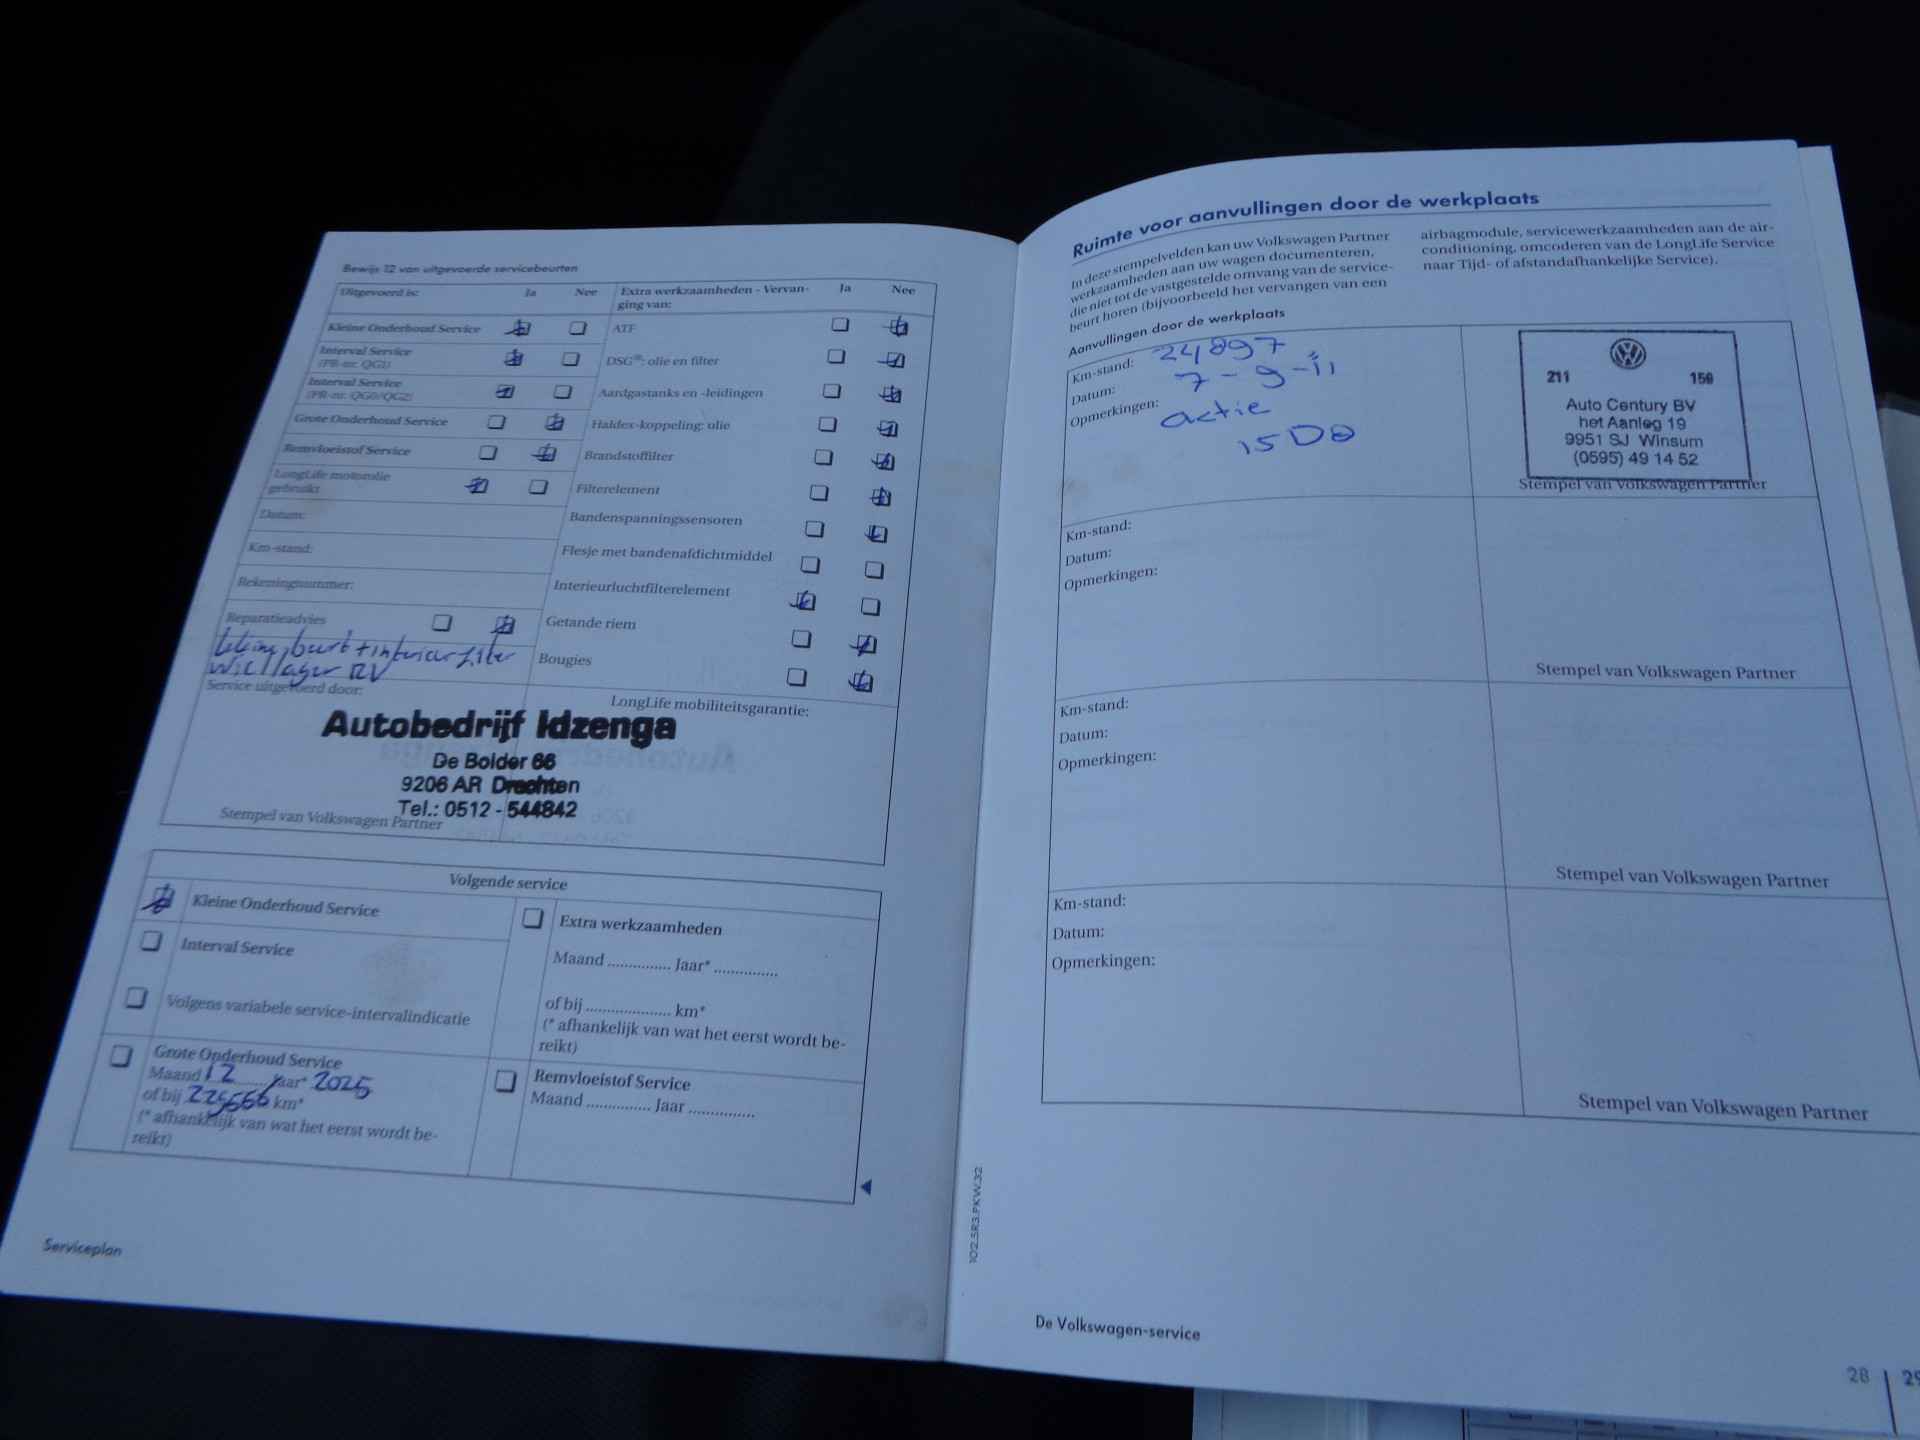 Bewijs 12 van uitgevoerde servicebeurten
Uitgevoerd is: Ja Nee
Kleine Onderhoud Service
Interval Service
(PR-nr. QG1)
Interval Service
(PR-nr. QG0/QG2)
Grote Onderhoud Service
Remvloeistof Service
LongLife motorolie
gebruikt
Datum:
Km-stand:
Rekeningnummer:
Reparatieadvies
beurt + interieurfilter
Wiellager RV
Extra werkzaamheden - Vervan- Ja Nee
ging van:
ATF
DSG®: olie en filter
Aardgastanks en -leidingen
Haldex-koppeling: olie
Brandstoffilter
Filterelement
Bandenspanningssensoren
Flesje met bandenafdichtmiddel
Interieurluchtfilterelement
Getande riem
Bougies
Service uitgevoerd door:
LongLife mobiliteitsgarantie:
Autobedrijf Idzenga
De Bolder 66
9206 AR Drachten
Tel.: 0512 - 544842
Stempel van Volkswagen Partner
Volgende service
Kleine Onderhoud Service
Interval Service
Volgens variabele service-intervalindicatie
Grote Onderhoud Service
Maand 12 Jaar* 2025
of bij 225566 km*
(* afhankelijk van wat het eerst wordt be-
reikt)
Extra werkzaamheden
Maand ............... Jaar* ...............
of bij .................... km*
(* afhankelijk van wat het eerst wordt be-
reikt)
Remvloeistof Service
Maand ............... Jaar ...............
Serviceplan
Ruimte voor aanvullingen door de werkplaats
In deze stempelvelden kan uw Volkswagen Partner
werkzaamheden aan uw wagen documenteren,
die niet tot de vastgestelde omvang van de service-
beurt horen (bijvoorbeeld het vervangen van een
airbagmodule, servicewerkzaamheden aan de air-
conditioning, omcoderen van de LongLife Service
naar Tijd- of afstandafhankelijke Service).
Aanvullingen door de werkplaats
Km-stand: 24897
Datum: 7-9-11
Opmerkingen: actie
15D8
211 150
Auto Century BV
het Aanleg 19
9951 SJ Winsum
(0595) 49 14 52
Stempel van Volkswagen Partner
Km-stand:
Datum:
Opmerkingen:
Stempel van Volkswagen Partner
Km-stand:
Datum:
Opmerkingen:
Stempel van Volkswagen Partner
Km-stand:
Datum:
Opmerkingen:
Stempel van Volkswagen Partner
102.5R3.PKW.32
De Volkswagen-service
28 29